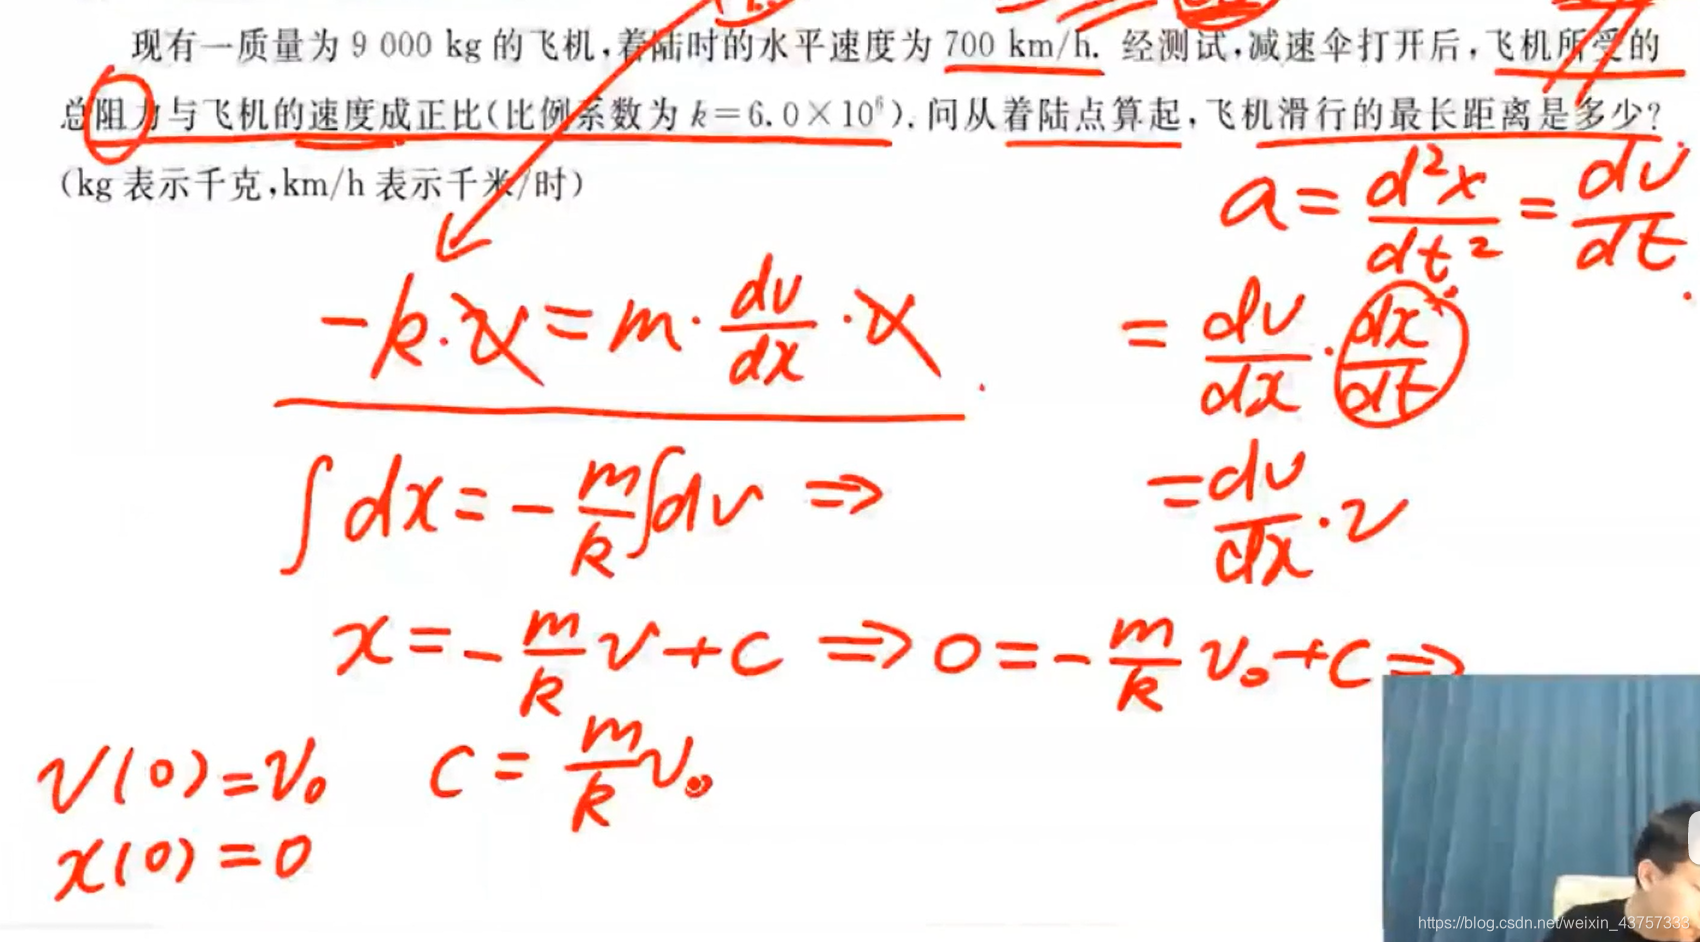 现有一质量为 9 000 kg 的飞机,着陆时的水平速度为 700 km/h. 经测试,减速伞打开后,飞机所受的
总阻力与飞机的速度成正比(比例系数为 k=6.0×10⁶). 问从着陆点算起,飞机滑行的最长距离是多少?
(kg 表示千克,km/h 表示千米/时)
a = d²x/dt² = dv/dt
-k·v = m·dv/dx·v
= dv/dx·dx/dt
∫dx = -m/k∫dv ⇒
= dv/dx·v
x = -m/k v + C ⇒ 0 = -m/k v₀ + C ⇒
v(0) = v₀
C = m/k v₀
x(0) = 0
https://blog.csdn.net/weixin_43757333